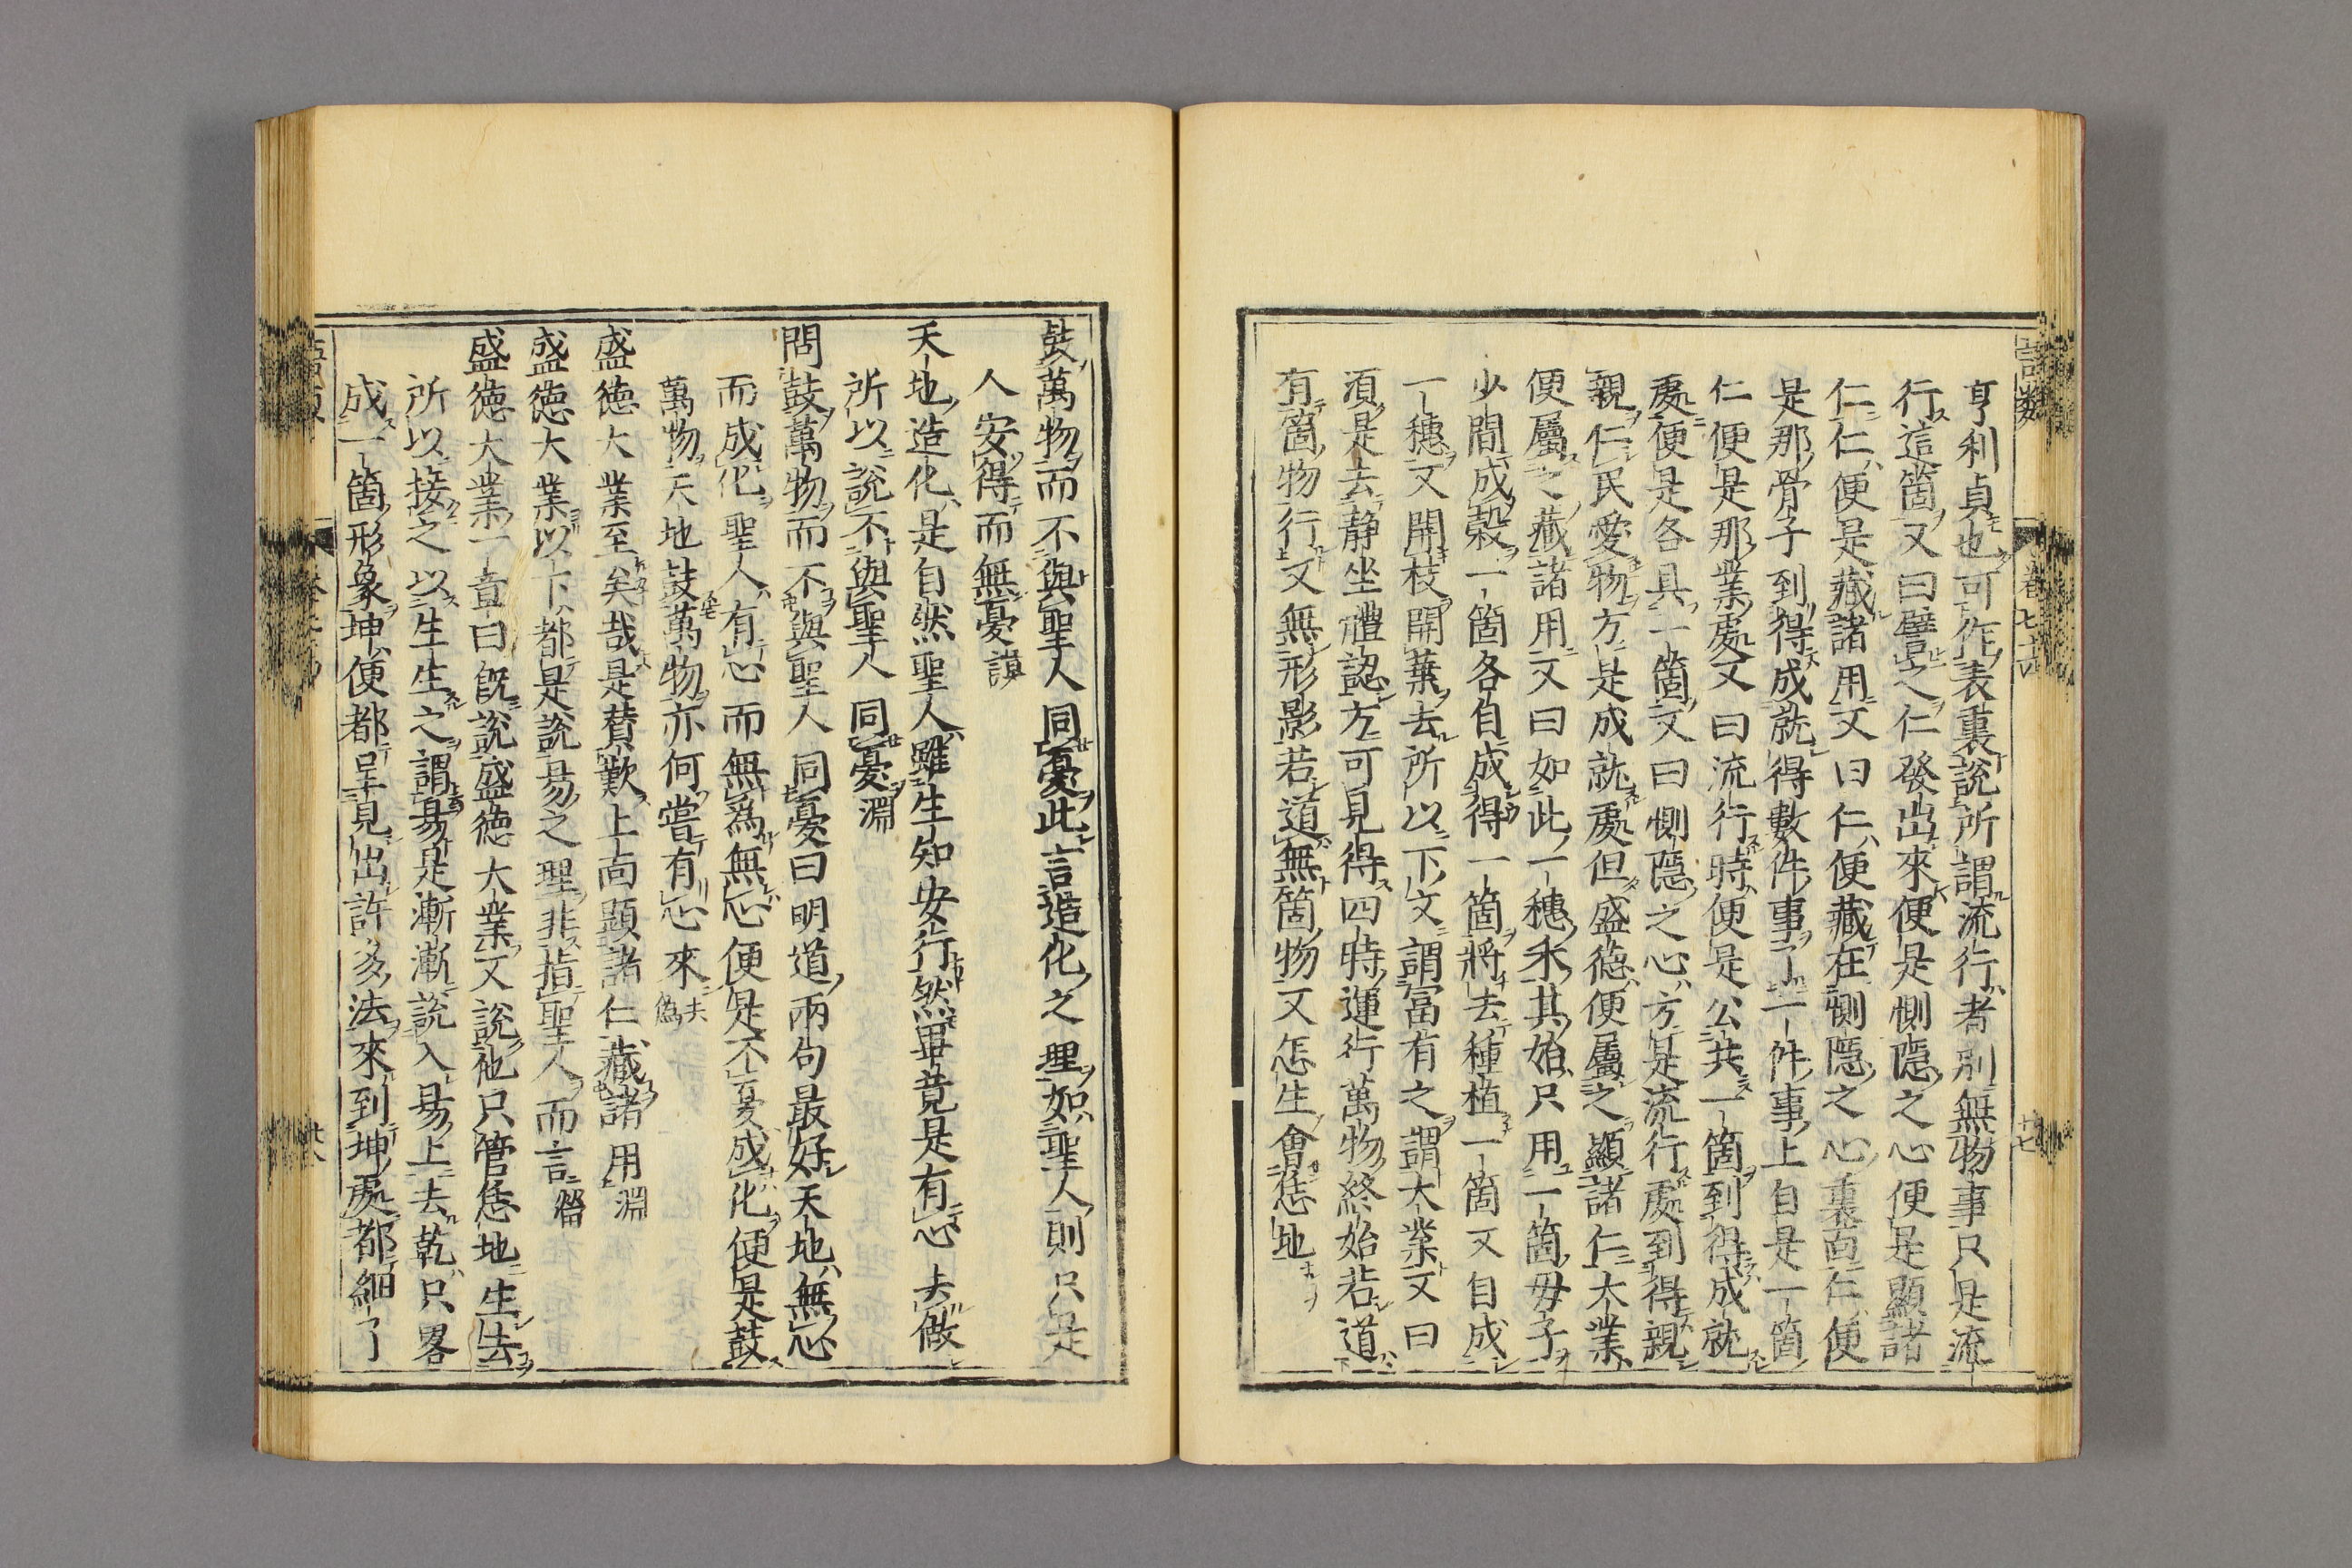 亨利貞也可作表裏說所謂流行者別無物事只是流
行這箇又曰譬之仁發出來便是惻隱之心便是顯諸
仁仁便是藏諸用又曰仁便藏在惻隱之心裏面仁便
是那骨子到得成就得數件事了一件事上自是一箇
仁便是那業處又曰流行時便是公共一箇到得成就
處便是各具一箇又曰惻隱之心方是流行處到得親
親仁民愛物方是成就處但盛德便屬之顯諸仁大業
便屬之藏諸用又曰如此一穗禾其始只用一箇毋子
少間成穀一箇各自成得一箇將去種植一箇又自成
一穗又開枝開葉去所以下文謂富有之謂大業又曰
須是去靜坐體認方可見得四時運行萬物終始若道
有箇物行又無形影若道無箇物又怎生會恁地
鼓萬物而不與聖人同憂此言造化之理如聖人則只是
人安得而無憂謨
天地造化是自然聖人雖生知安行然畢竟是有心去做
所以說不與聖人同憂淵
問鼓萬物而不與聖人同憂曰明道兩句最好天地無心
而成化聖人有心而無為無心便是不憂成化便是鼓
萬物天地鼓萬物亦何嘗有心來去偽
盛德大業至矣哉是贊歎上面顯諸仁藏諸用淵
盛德大業以下都是說易之理非指聖人而言㽦
盛德大業一章曰既說盛德大業又說他只管恁地生去
所以接之以生生之謂易是漸漸說入易上去乾只畧
成一箇形象坤便都呈見出許多法來到坤處都細了